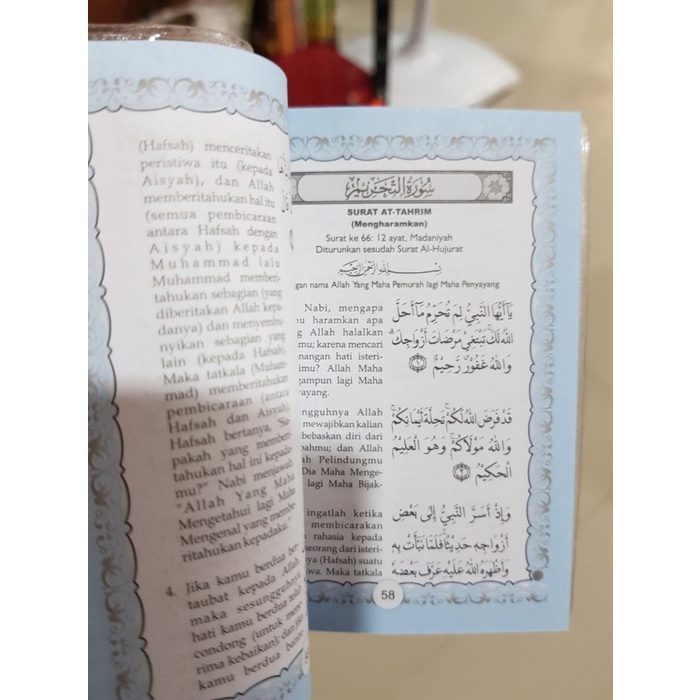 (Hafsah) menceritakan
peristiwa itu (kepada
Aisyah), dan Allah
memberitahukan hal itu
(semua pembicaraan
antara Hafsah dengan
Aisyah) kepada
Muhammad lalu
Muhammad member-
tahukan sebagian (yang
diberitakan Allah kepa-
danya) dan menyembu-
nyikan sebagian yang
lain (kepada Hafsah).
Maka tatkala (Muham-
mad) memberitahukan
pembicaraan (antara
Hafsah dan Aisyah),
Hafsah bertanya, "Sia-
pakah yang member-
tahukan hal ini kepada-
mu?" Nabi menjawab,
"Allah Yang Maha
Mengetahui lagi Maha
Mengenal yang membe-
ritahukan kepadaku."
4. Jika kamu berdua ber-
taubat kepada Allah,
maka sesungguhnya
hati kamu berdua telah
condong (untuk mene-
rima kebaikan); dan jika
kamu berdua
سورة التحريم
SURAT AT-TAHRIM
(Mengharamkan)
Surat ke 66: 12 ayat, Madaniyah
Diturunkan sesudah Surat Al-Hujurat
بِسْمِ اللهِ الرَّحْمٰنِ الرَّحِيْمِ
nama Allah Yang Maha Pemurah lagi Maha Penyayang
Nabi, mengapa
haramkan apa
Allah halalkan
karena mencari
hati isteri-
Allah Maha
lagi Maha
Allah
mewajibkan kalian
diri dari
dan Allah
Pelindungmu
Dia Maha Menge-
lagi Maha Bijak-
ingatlah ketika
membicarakan
rahasia kepada
dari isteri-
(Hafsah) suatu
Maka tatkala
يَآاَيُّهَا النَّبِيُّ لِمَ تُحَرِّمُ مَآ اَحَلَّ
اللهُ لَكَۚ تَبْتَغِيْ مَرْضَاتَ اَزْوَاجِكَۗ
وَاللهُ غَفُوْرٌ رَّحِيْمٌ ۝١
قَدْ فَرَضَ اللهُ لَكُمْ تَحِلَّةَ اَيْمَانِكُمْۚ
وَاللهُ مَوْلَاكُمْۚ وَهُوَ الْعَلِيْمُ
الْحَكِيْمُ ۝٢
وَاِذْ اَسَرَّ النَّبِيُّ اِلَى بَعْضِ
اَزْوَاجِهِ حَدِيْثًاۚ فَلَمَّا نَبَّأَتْ بِهِ
وَاَظْهَرَهُ اللهُ عَلَيْهِ عَرَّفَ بَعْضَهُ
58